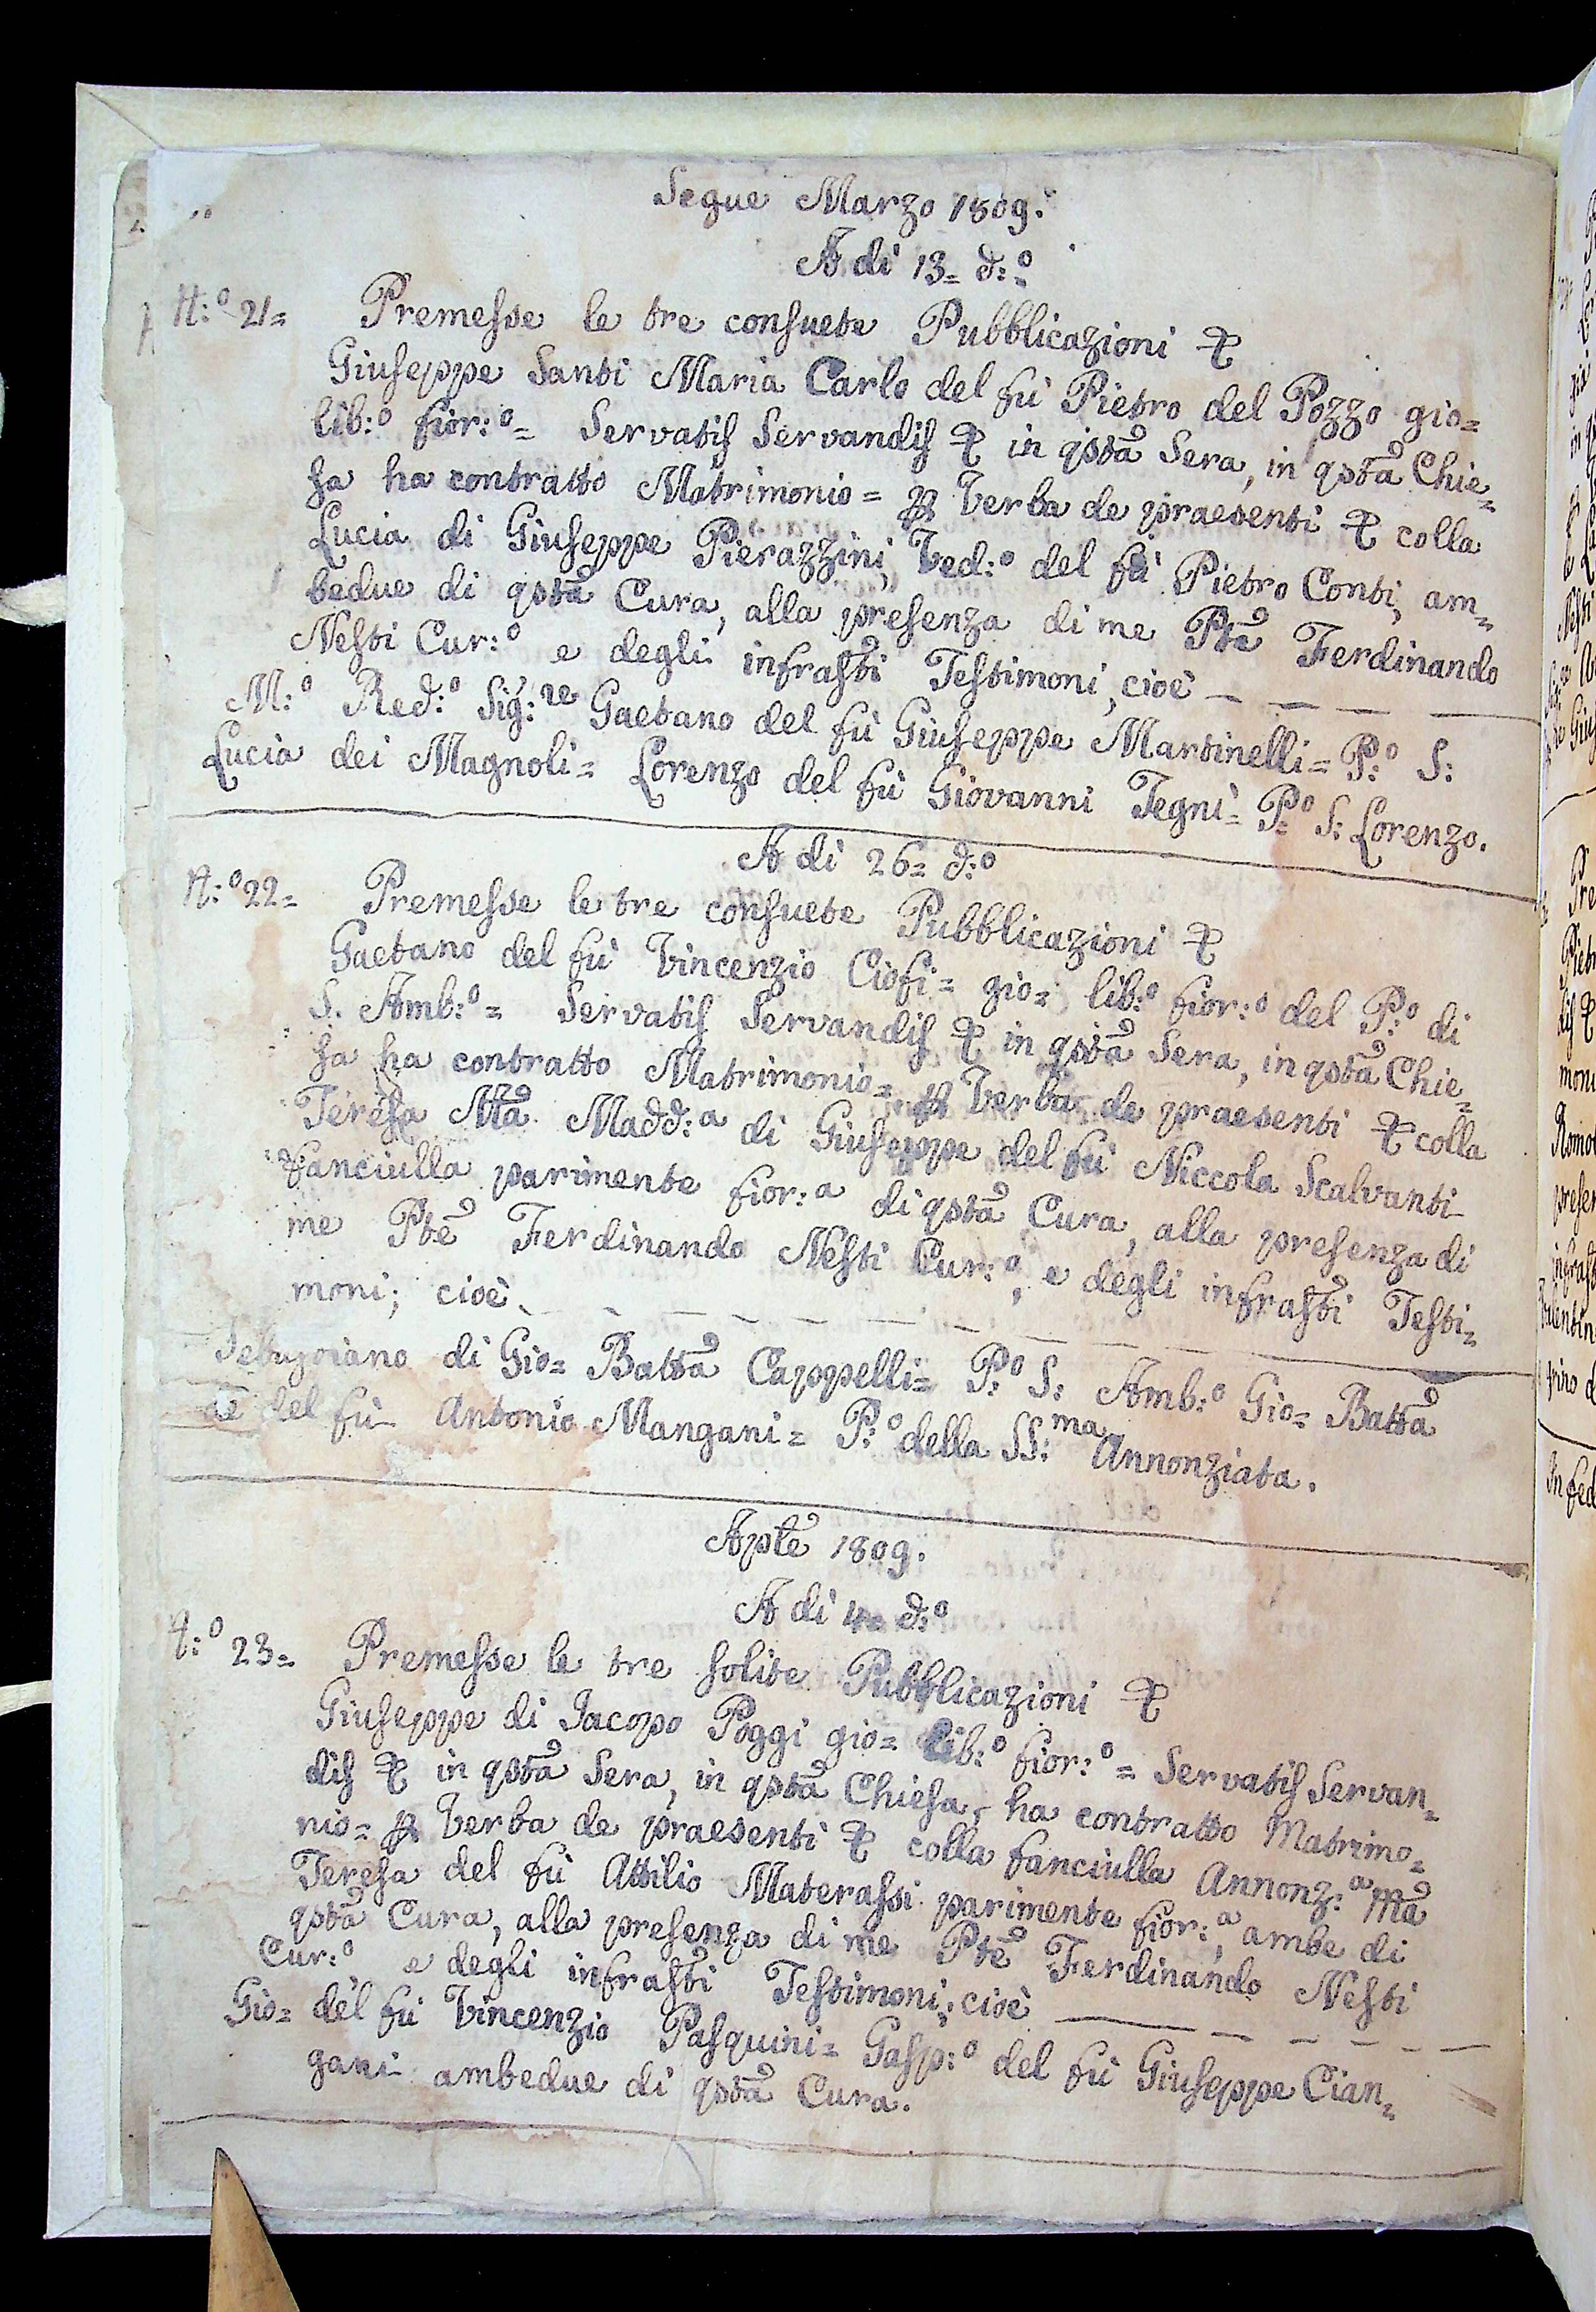 Segue Marzo 1809.
A di 13= d:º
N:º 21= Premesse le tre consuete Pubblicazioni &
Giuseppe Santi Maria Carlo del fù Pietro del Pozzo gio=
lib:º fior:º= Servatis Servandis & in qsta Sera, in qsta Chie=
sa ha contratto Matrimonio= p Verba de praesenti & colla
Lucia di Giuseppe Pierazzini, Ved:º del fù Pietro Conti, am=
bedue di qsta Cura, alla presenza di me Pte Ferdinando
Nesti Cur:º e degli infrasti Testimoni, cioè
M:º Red:º Sig:re Gaetano del fù Giuseppe Martinelli= P:º S:
Lucia dei Magnoli= Lorenzo del fù Giovanni Tegni= P:º S: Lorenzo.
A di 26= d:º
N:º 22= Premesse le tre consuete Pubblicazioni &
Gaetano del fù Vincenzio Ciofi= gio= lib:º fior:º del P:º di
S. Amb:º= Servatis Servandis & in qsta Sera, in qsta Chie=
sa ha contratto Matrimonio= p Verba de praesenti & colla
Teresa Ma Madd:a di Giuseppe del fù Niccola Scalvanti
Fanciulla parimente fior:a di qsta Cura, alla presenza di
me Pte Ferdinando Nesti Cur:º, e degli infrasti Testi=
moni; cioè
di Gio= Batta Cappelli= P:º S: Amb:º Gio= Batta
del fù Antonio Mangani= P:º della SS:ma Annonziata.
Aple 1809.
A di 4= d:º
N:º 23= Premesse le tre solite Pubblicazioni &
Giuseppe di Jacopo Poggi gio= lib:º fior:º= Servatis Servan=
dis & in qsta Sera, in qsta Chiesa, ha contratto Matrimo=
nio= p Verba de praesenti & colla fanciulla Annonz:a Ma
Teresa del fù Attilio Materassi parimente fior:a, ambe di
qsta Cura, alla presenza di me Pte Ferdinando Nesti
Cur:º e degli infrasti Testimoni; cioè
Gio= del fù Vincenzio Pasquini= Gasp:º del fù Giuseppe Cian=
gani ambedue di qsta Cura.